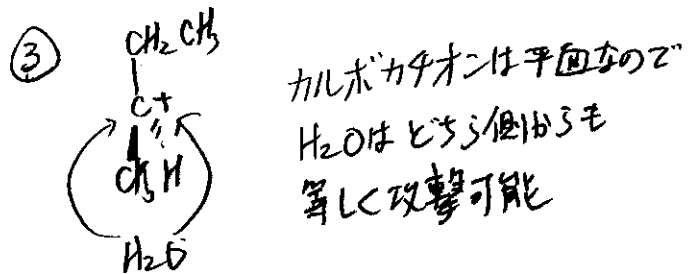 ③
CH₂CH₃
C+
CH₃ H
H₂O
カルボカチオンは平面なので
H₂Oはどちら側からも
等しく攻撃可能